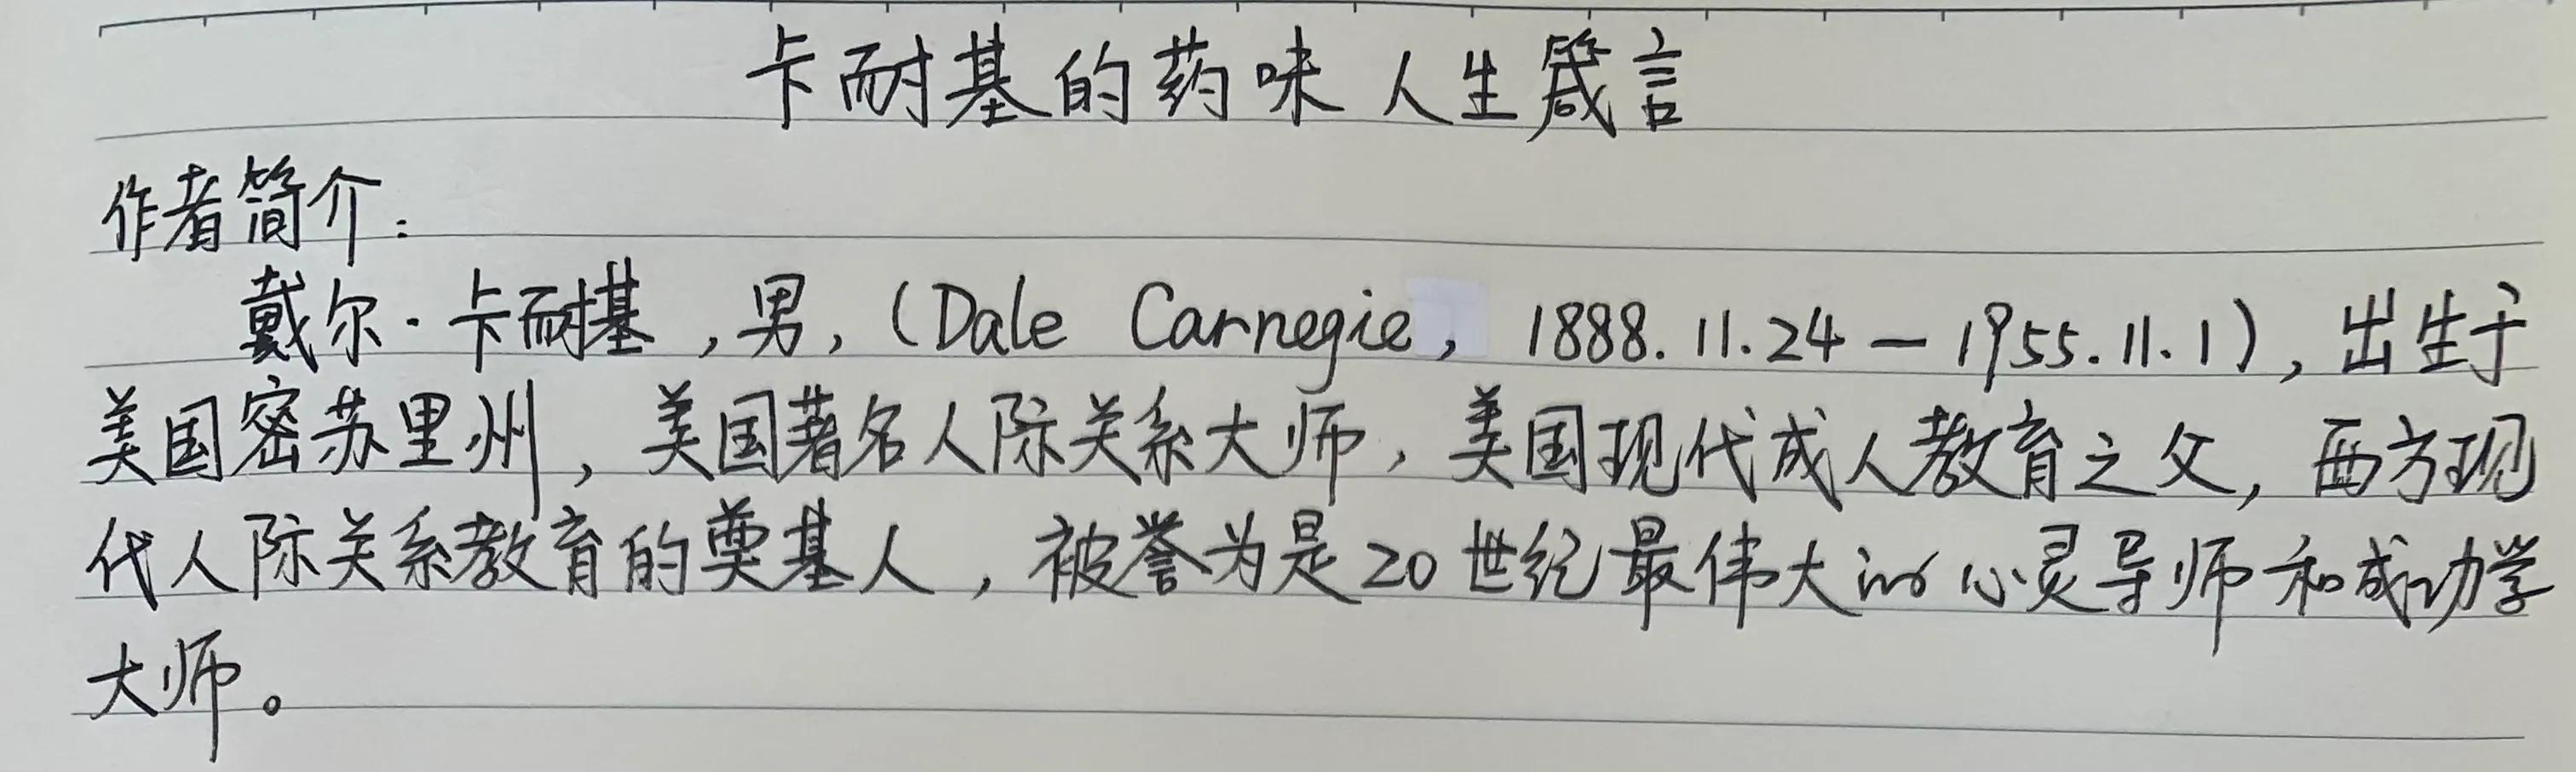 卡耐基的药味人生箴言
作者简介:
戴尔·卡耐基,男,(Dale Carnegie, 1888.11.24—1955.11.1),出生于
美国密苏里州,美国著名人际关系大师,美国现代成人教育之父,西方现
代人际关系教育的奠基人,被誉为是20世纪最伟大的心灵导师和成功学
大师。